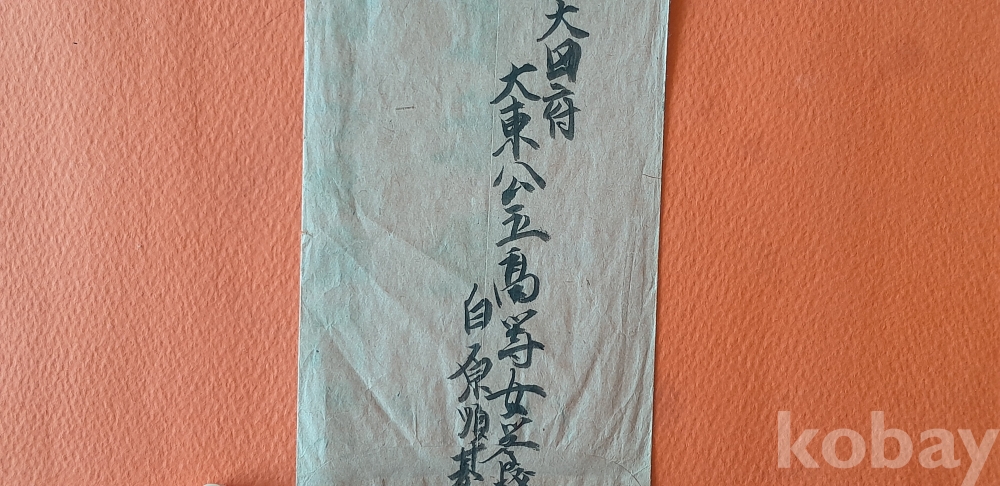 大田府
大東公立高等女学校
白原順基
kobay